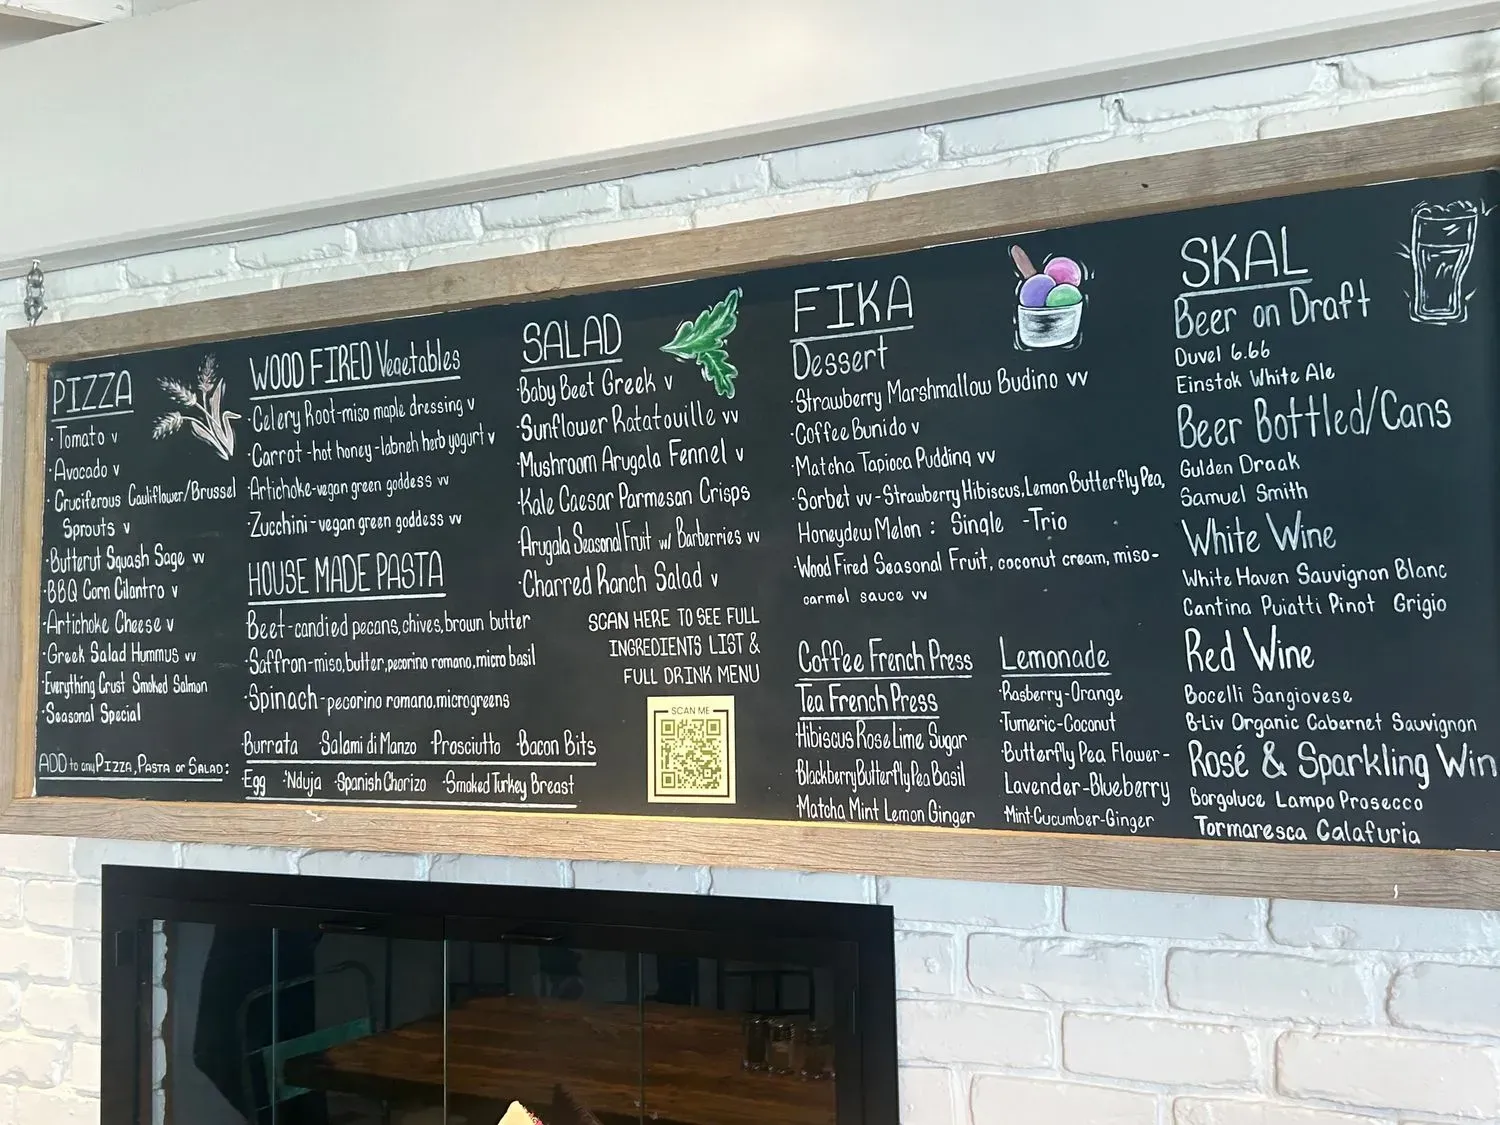 PIZZA
·Tomato v
·Avocado v
·Cruciferous Cauliflower/Brussel
Sprouts v
·Butternut Squash Sage vv
·BBQ Corn Cilantro v
·Artichoke Cheese v
·Greek Salad Hummus vv
·Everything Crust Smoked Salmon
·Seasonal Special
ADD to any PIZZA, PASTA or SALAD:
WOOD FIRED Vegetables
·Celery Root-miso maple dressing v
·Carrot -hot honey-labneh herb yogurt v
·Artichoke-vegan green goddess vv
·Zucchini-vegan green goddess vv
HOUSE MADE PASTA
·Beet-candied pecans, chives, brown butter
·Saffron-miso, butter, pecorino romano, micro basil
·Spinach-pecorino romano, microgreens
·Burrata ·Salami di Manzo ·Prosciutto ·Bacon Bits
·Egg ·'Nduja ·Spanish Chorizo ·Smoked Turkey Breast
SALAD
·Baby Beet Greek v
·Sunflower Ratatouille vv
·Mushroom Arugala Fennel v
·Kale Caesar Parmesan Crisps
·Arugala Seasonal Fruit w/ Barberries vv
·Charred Ranch Salad v
SCAN HERE TO SEE FULL
INGREDIENTS LIST &
FULL DRINK MENU
SCAN ME
FIKA
Dessert
·Strawberry Marshmallow Budino vv
·Coffee Bunido v
·Matcha Tapioca Pudding vv
·Sorbet vv-Strawberry Hibiscus, Lemon Butterfly Pea,
Honeydew Melon : Single -Trio
·Wood Fired Seasonal Fruit, coconut cream, miso-
carmel sauce vv
Coffee French Press
Tea French Press
·Hibiscus Rose Lime Sugar
·Blackberry Butterfly Pea Basil
·Matcha Mint Lemon Ginger
Lemonade
·Rasberry-Orange
·Tumeric-Coconut
·Butterfly Pea Flower-
Lavender-Blueberry
·Mint-Cucumber-Ginger
SKAL
Beer on Draft
Duvel 6.66
Einstok White Ale
Beer Bottled/Cans
Gulden Draak
Samuel Smith
White Wine
White Haven Sauvignon Blanc
Cantina Puiatti Pinot Grigio
Red Wine
Bocelli Sangiovese
B-Liv Organic Cabernet Sauvignon
Rosé & Sparkling Win
Borgoluce Lampo Prosecco
Tormaresca Calafuria